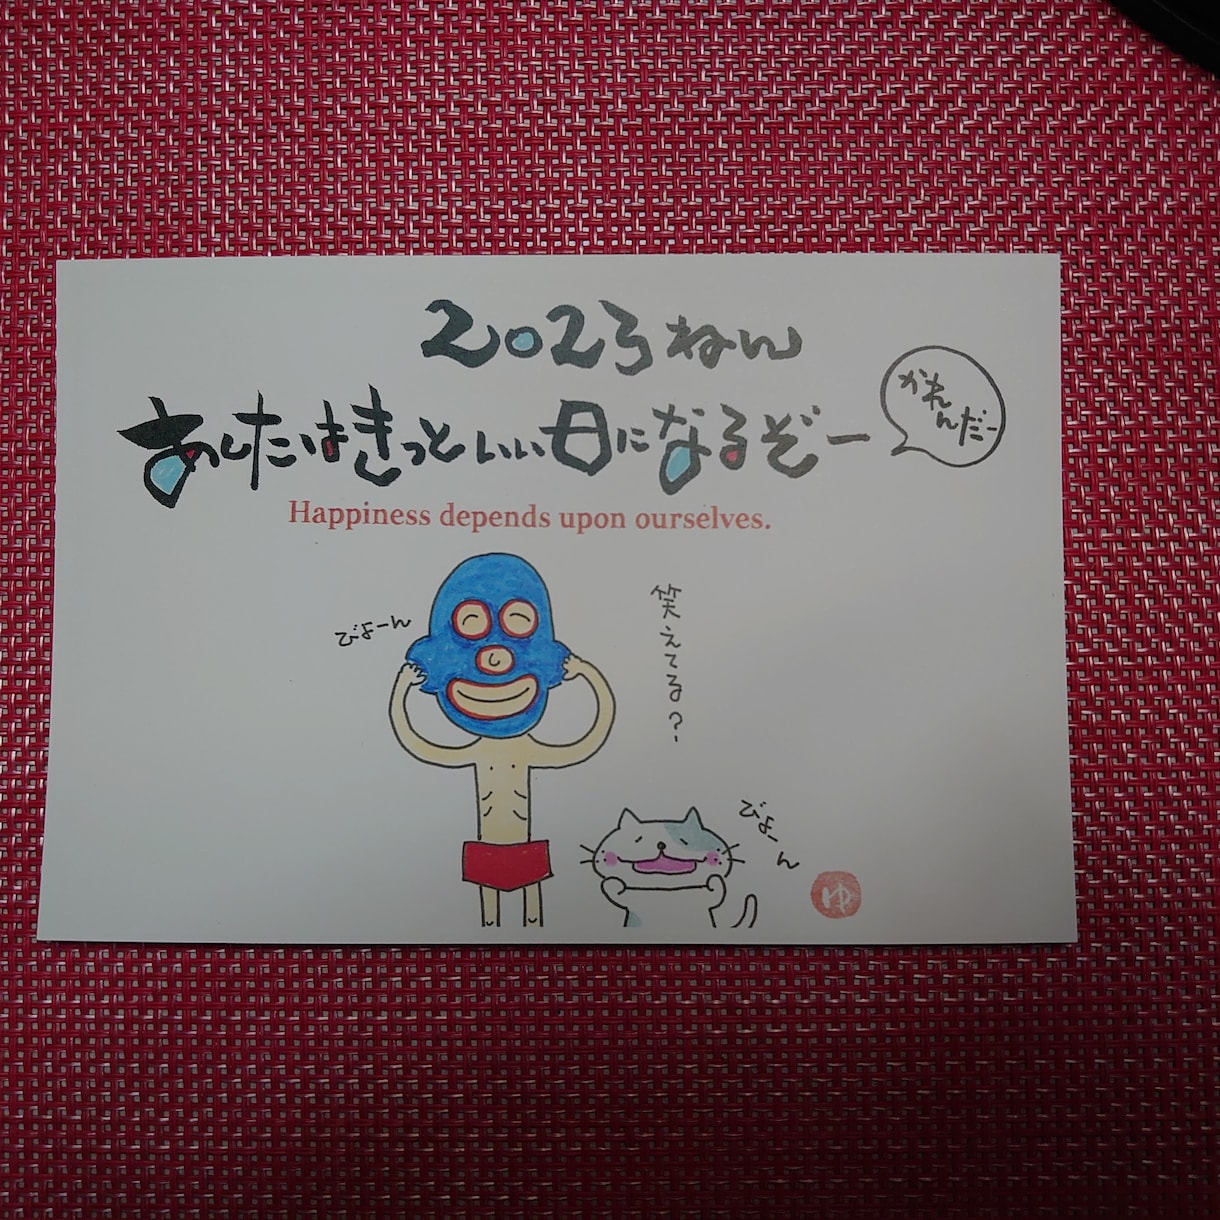 2023ねん
あしたはきっといい日になるぞー
かれんだー
Happiness depends upon ourselves.
びよーん
笑えてる?
びよーん
ゆ